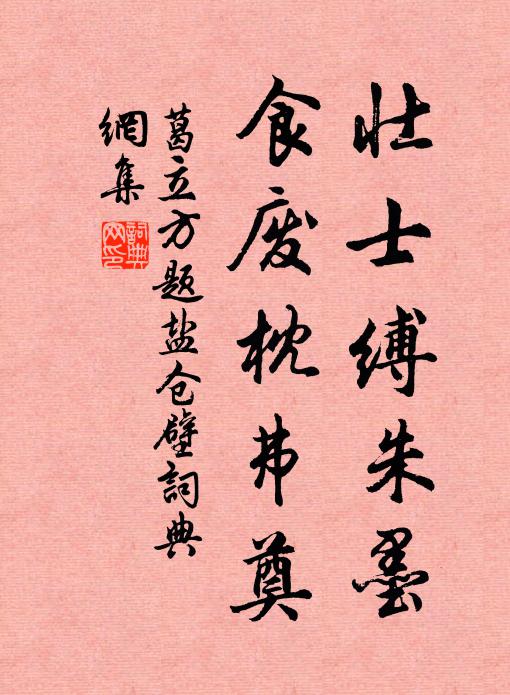 壮士缚朱墨
食废枕弗奠
葛立方题盐仓壁词典
网集
词典网印